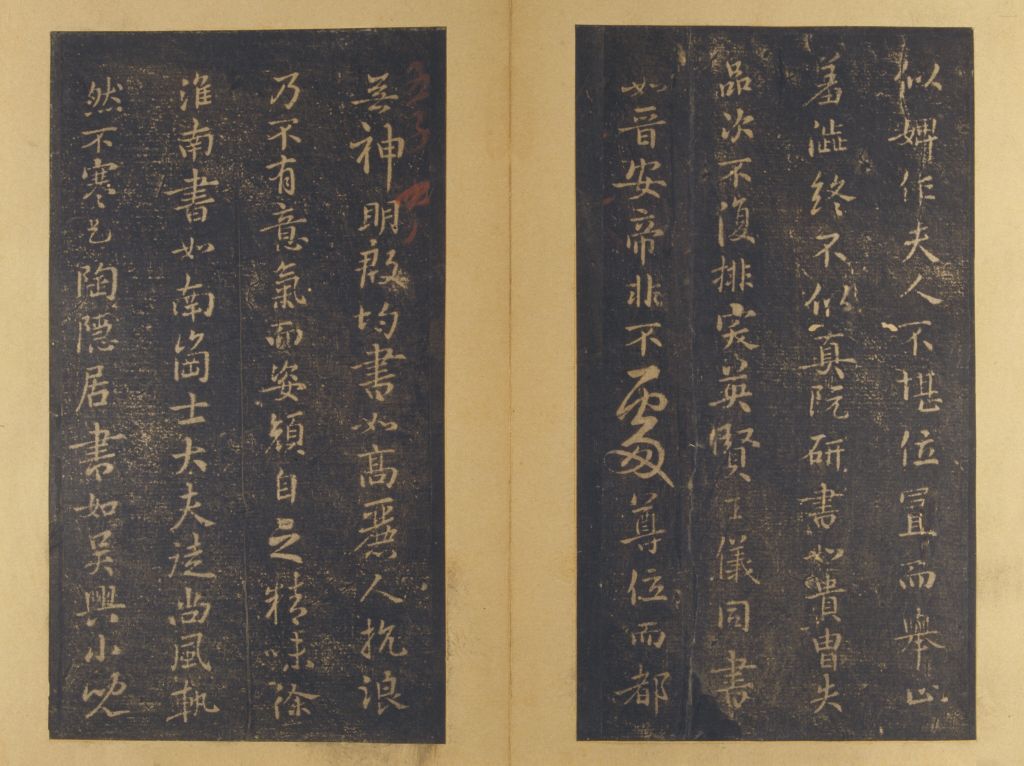 似婢作夫人不堪位置而舉止
羞澁終不似真阮研書如貴胄失
品次不復排突英賢王儀同書
如晉安帝非不處尊位而都
無神明殷均書如高麗人抗浪
乃不有意氣而姿顏自乏精味徐
淮南書如南岡士大夫徒尚風軌
然不寒乞陶隱居書如吳興小兒